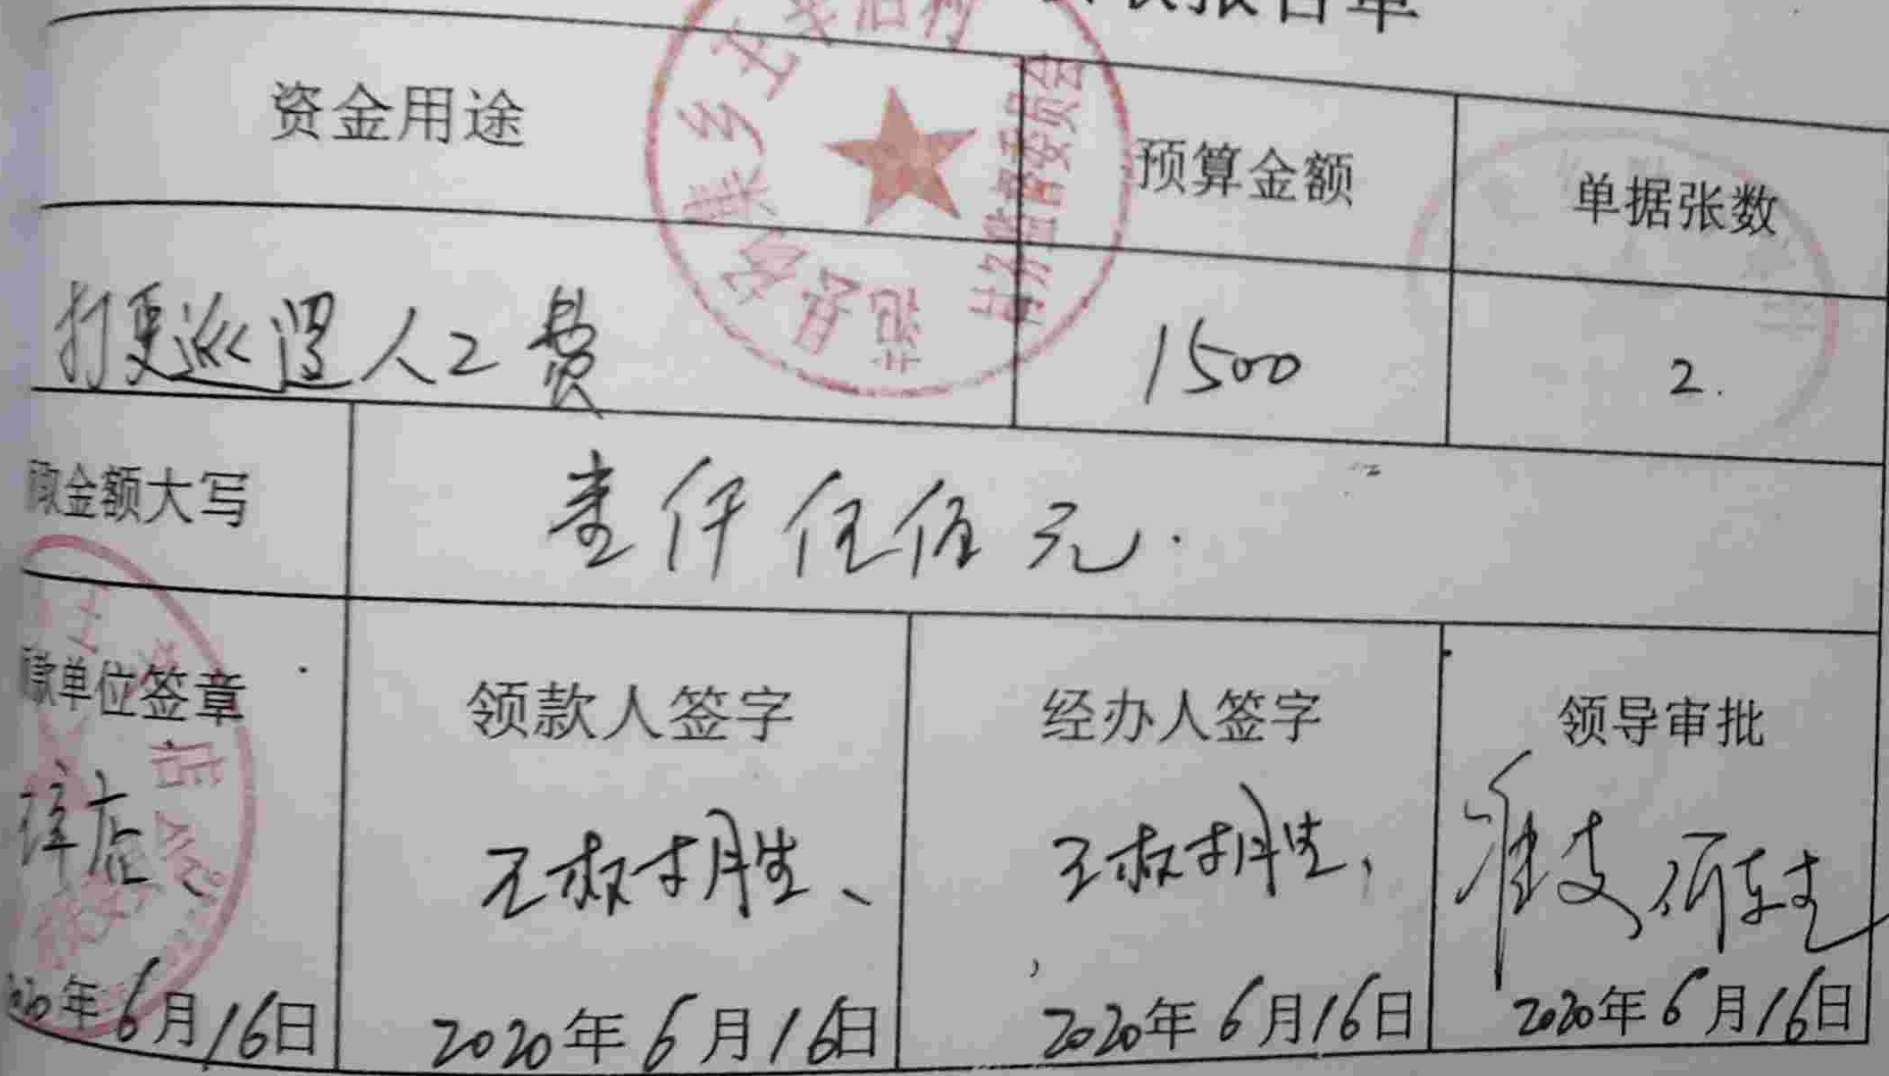 报告单
资金用途 预算金额 单据张数
村务监督委员会
打更巡逻人工费 1500 2.
金额大写 壹仟伍佰元.
单位签章 领款人签字 经办人签字 领导审批
王叔胜、 王叔胜, 准支
年6月16日 2020年6月16日 2020年6月16日 2020年6月16日